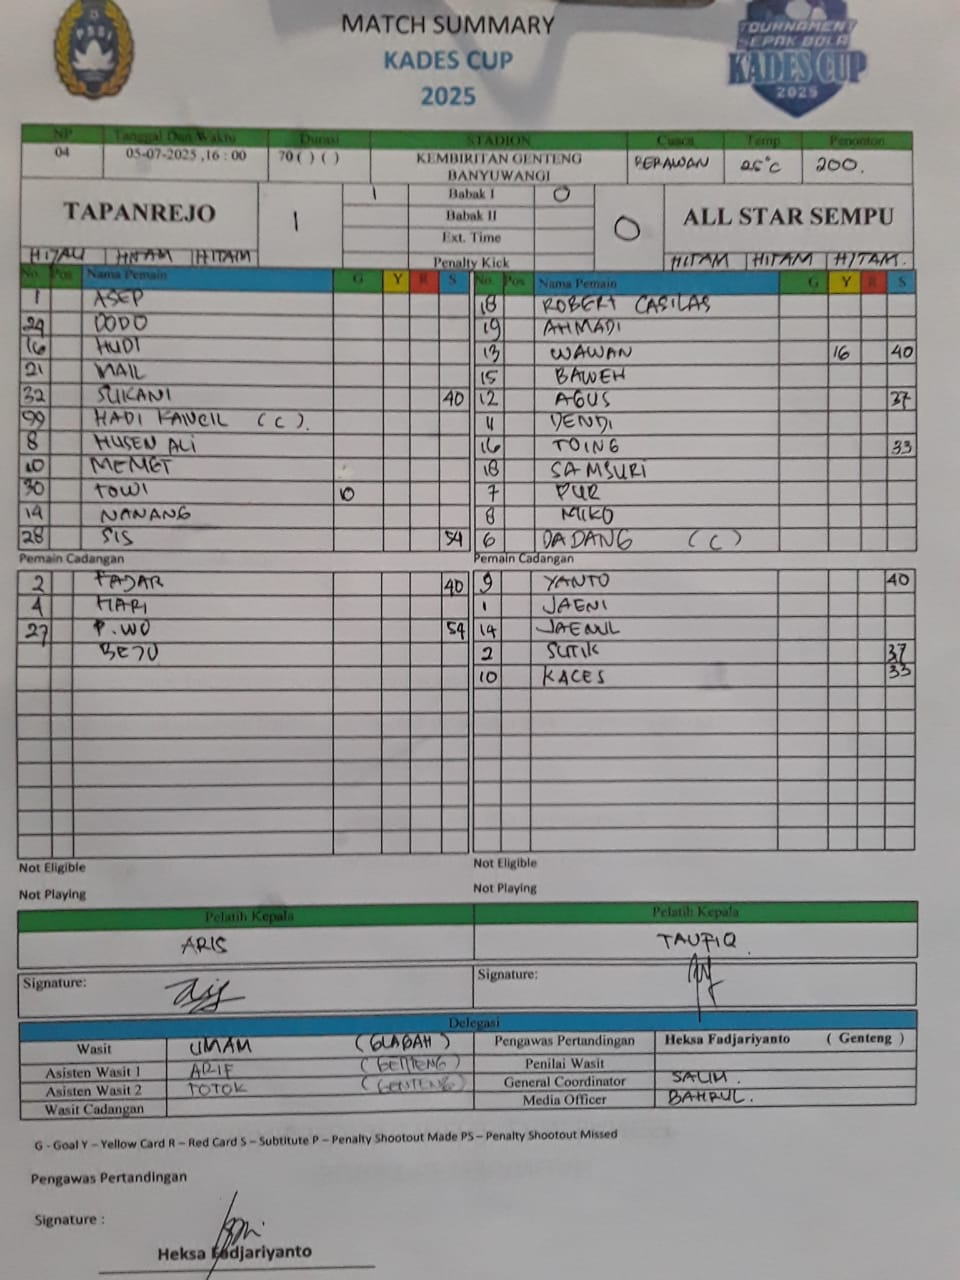 PSSI
MATCH SUMMARY
KADES CUP
2025
TOURNAMENT
SEPAK BOLA
KADES CUP
2025
NP Tanggal Dan Waktu Durasi STADION Cuaca Temp Penonton
04 05-07-2025 ,16 : 00 70 ( ) ( ) KEMBIRITAN GENTENG BERAWAN 25°C 200.
BANYUWANGI
TAPANREJO 1 1 Babak I 0 0 ALL STAR SEMPU
Babak II
Ext. Time
HIJAU HITAM HITAM Penalty Kick HITAM HITAM HITAM.
No. Pos Nama Pemain G Y R S No. Pos Nama Pemain G Y R S
1 ASEP 18 ROBERT CASILAS
29 DODO 19 AHMADI
16 HUDI 13 WAWAN 16 40
21 MAIL 15 BAWEH
32 SUKANI 40 12 AGUS 37
99 HADI KANCIL (C). 4 DENDI
8 HUSEN ALI 16 TOING 33
10 MEMET 18 SAMSURI
30 TOWI 10 7 PUR
19 NANANG 8 MIKO
28 SIS 54 6 DADANG (C)
Pemain Cadangan Pemain Cadangan
2 FAJAR 40 9 YANTO 40
4 HARI 1 JAENI
27 P.WO 54 14 JAENUL
2 SUTIK 37
10 KACES 33
Not Eligible Not Eligible
Not Playing Not Playing
Pelatih Kepala Pelatih Kepala
ARIS TAUFIQ
Signature: Signature:
Delegasi
Wasit UMAM (GLAGAH) Pengawas Pertandingan Heksa Fadjariyanto ( Genteng )
Asisten Wasit 1 ARIF (GENTENG) Penilai Wasit
Asisten Wasit 2 TOTOK (GENTENG) General Coordinator SALIM.
Wasit Cadangan Media Officer BAHRUL.
G - Goal Y – Yellow Card R – Red Card S – Subtitute P – Penalty Shootout Made PS – Penalty Shootout Missed
Pengawas Pertandingan
Signature :
Heksa Fadjariyanto